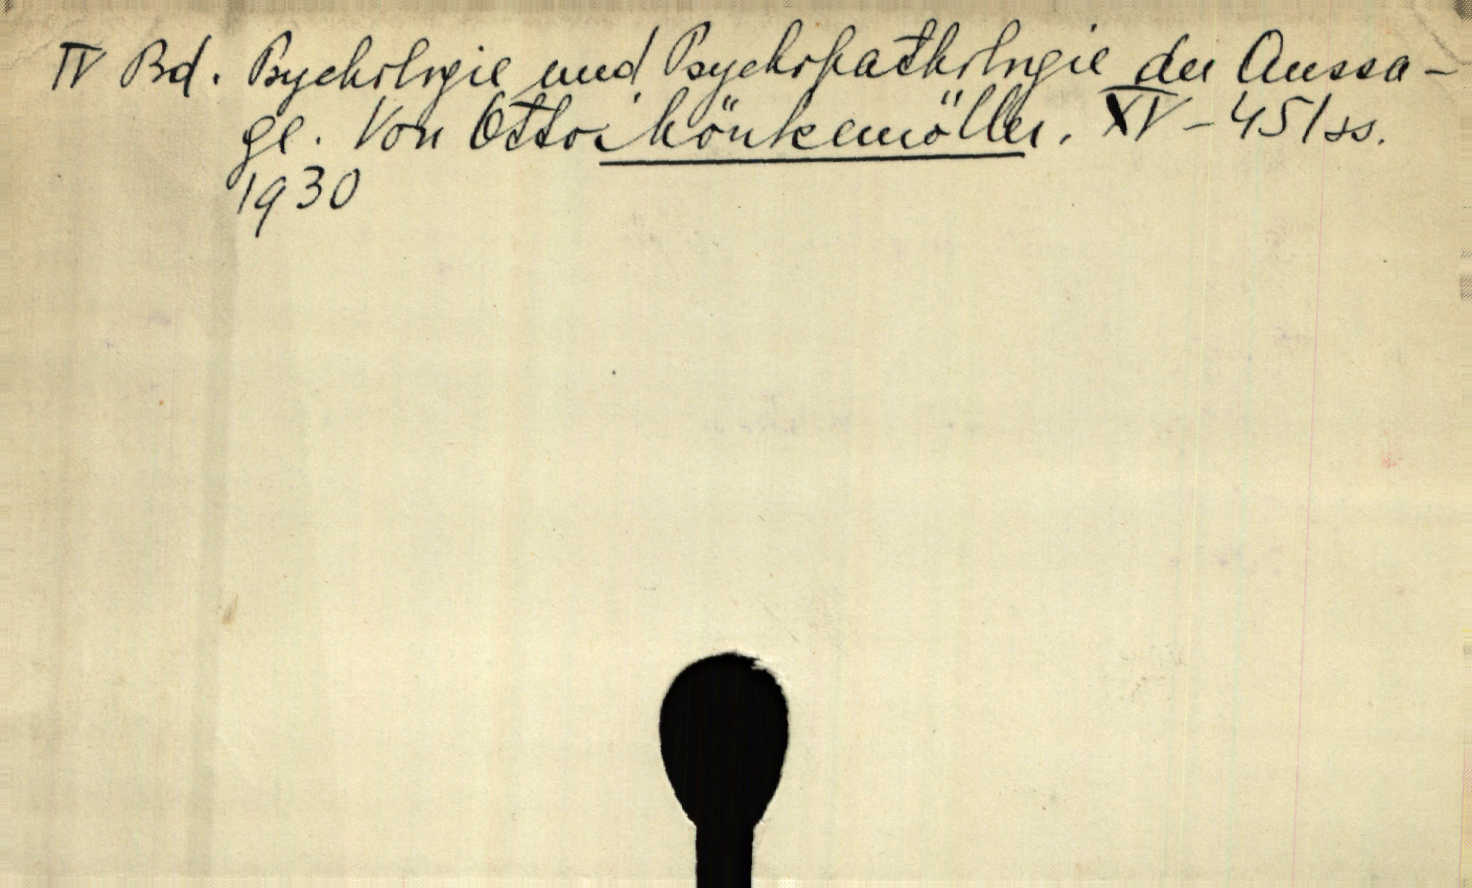 IV Bd. Psychologie und Psychopathologie der Aussa-
ge. Von Otto Mönkemöller. XV-451ss.
1930